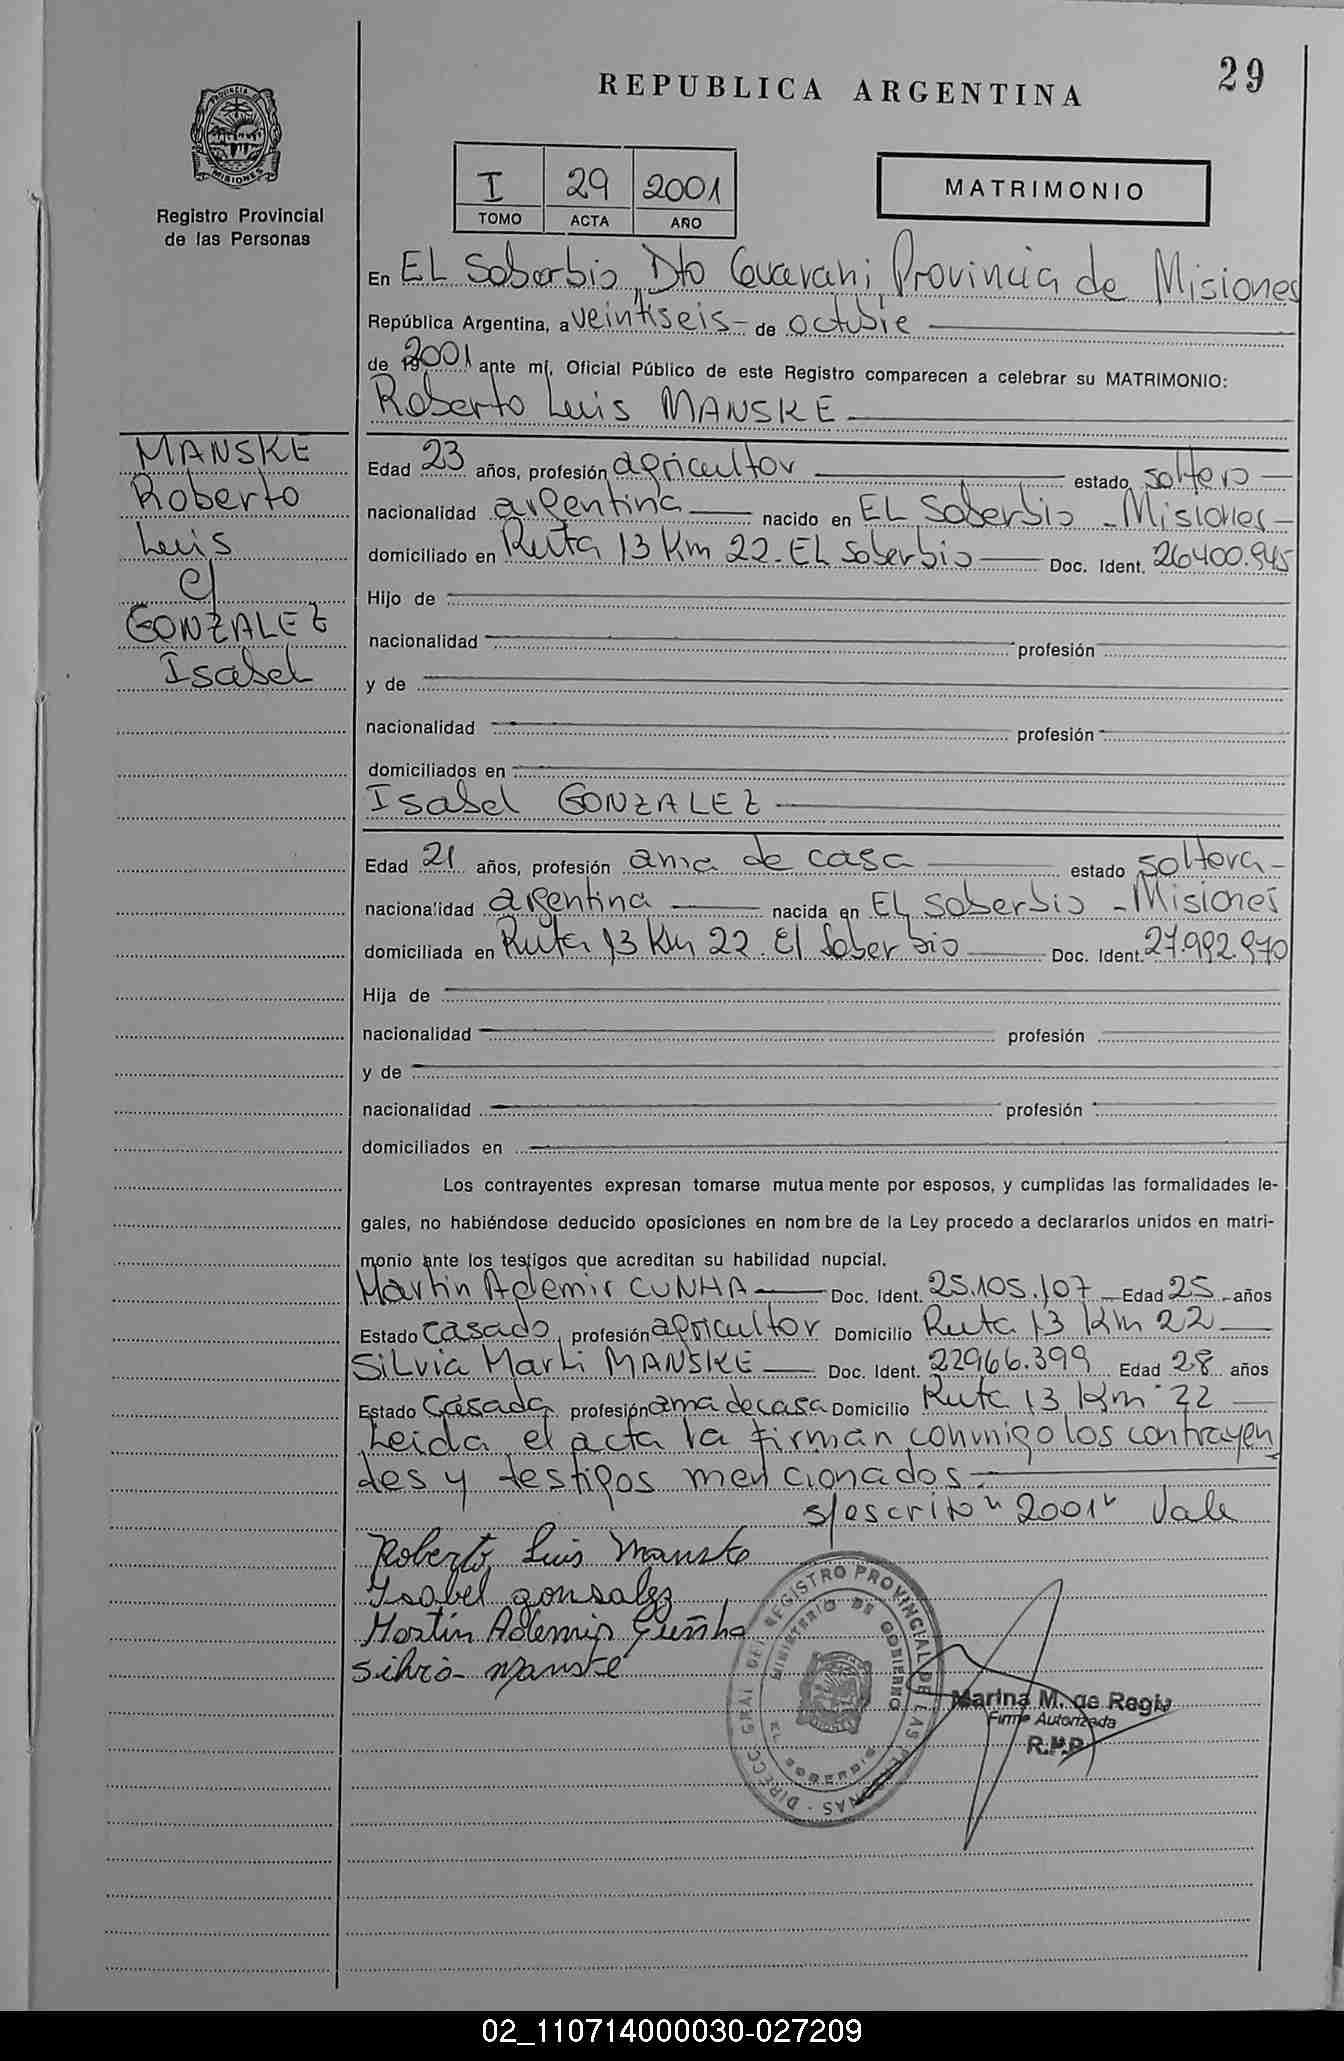 29
REPUBLICA ARGENTINA
PROVINCIA DE MISIONES
Registro Provincial
de las Personas
I 29 2001
TOMO ACTA AÑO
MATRIMONIO
En EL Soberbio, Dto Guarani, Provincia de Misiones
República Argentina, a veintiseis - de octubre
de 2001 ante mí, Oficial Público de este Registro comparecen a celebrar su MATRIMONIO:
Roberto Luis MANSKE
MANSKE
Roberto
Luis
c/
GONZALEZ
Isabel
Edad 23 años, profesión agricultor estado soltero
nacionalidad argentina nacido en EL Soberbio - Misiones -
domiciliado en Ruta 13 Km 22 - EL Soberbio Doc. Ident. 26400.945
Hijo de
nacionalidad profesión
y de
nacionalidad profesión
domiciliados en
Isabel GONZALEZ
Edad 21 años, profesión ama de casa estado soltera -
nacionalidad argentina nacida en EL Soberbio - Misiones
domiciliada en Ruta 13 Km 22. El Soberbio Doc. Ident. 27.992.970
Hija de
nacionalidad profesión
y de
nacionalidad profesión
domiciliados en
Los contrayentes expresan tomarse mutuamente por esposos, y cumplidas las formalidades le-
gales, no habiéndose deducido oposiciones en nombre de la Ley procedo a declararlos unidos en matri-
monio ante los testigos que acreditan su habilidad nupcial.
Martin Ademir CUNHA Doc. Ident. 25.105.107 Edad 25 años
Estado casado, profesión agricultor Domicilio Ruta 13 Km 22
Silvia Marli MANSKE Doc. Ident. 22966.399 Edad 28 años
Estado casada profesión ama de casa Domicilio Ruta 13 Km 22
Leida el acta la firman conmigo los contrayen
tes y testigos mencionados.
s/escrito "2001" Vale
Roberto Luis Manske
Ysabel gonsalez
Martín Ademir Cuñha
Silvia Manske
DIRECC. GRAL. DEL REGISTRO PROVINCIAL DE LAS PERSONAS
MINISTERIO DE GOBIERNO
EL SOBERBIO
Marina M. de Regis
Firma Autorizada
R.P.P.
02_110714000030-027209